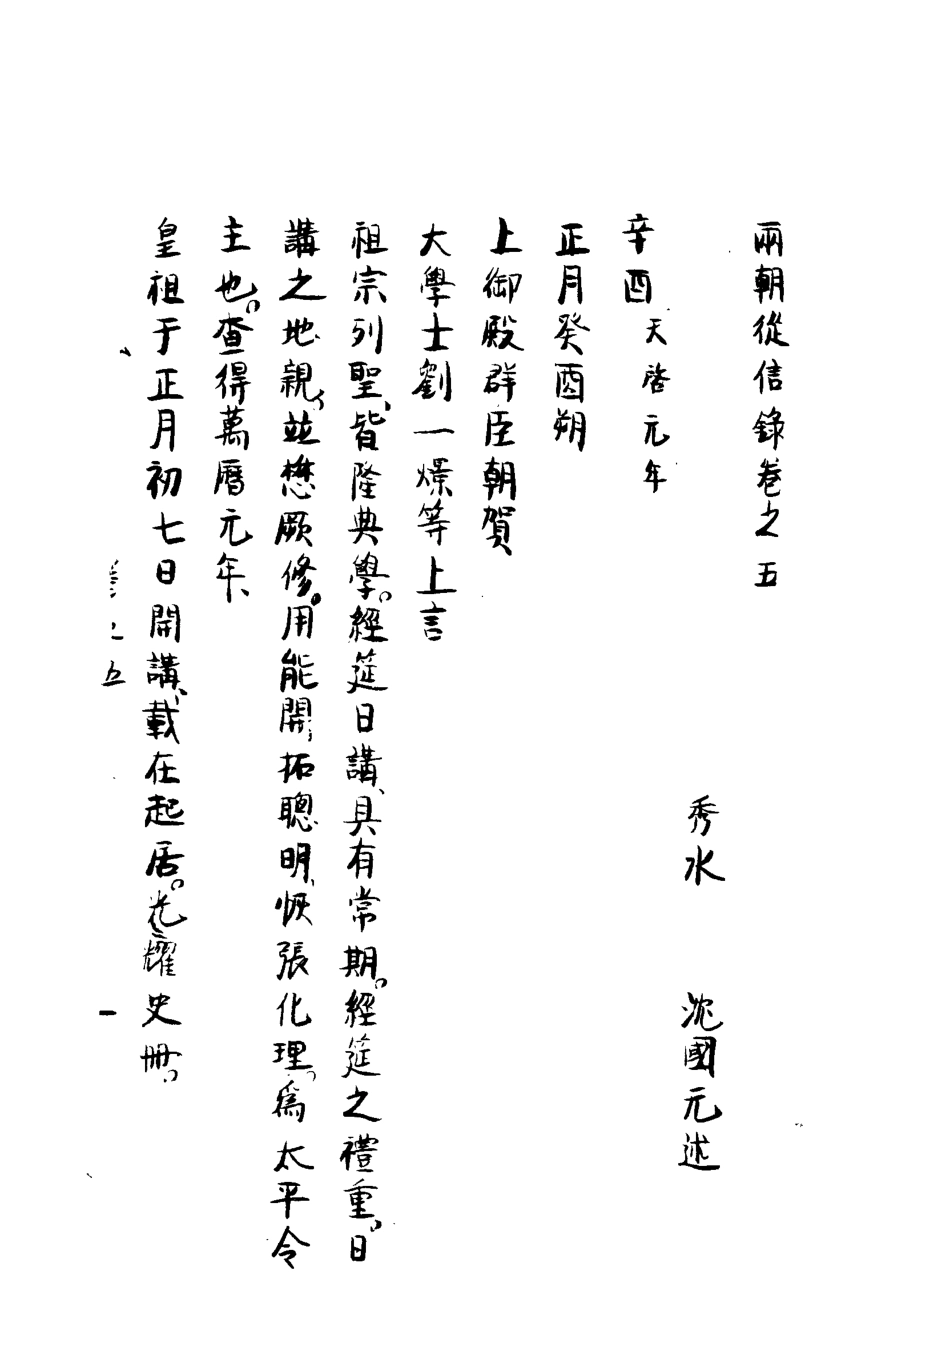 兩朝從信錄卷之五
秀水 沈國元述
辛酉 天啓元年
正月癸酉朔
上御殿群臣朝賀
大學士劉一燝等上言
祖宗列聖、皆隆典學。經筵日講、具有常期。經筵之禮重。日
講之地親、並懋厥修。用能開拓聰明、恢張化理。為太平令
主也。查得萬曆元年、
皇祖于正月初七日開講、載在起居。光耀史冊。
卷之五
一